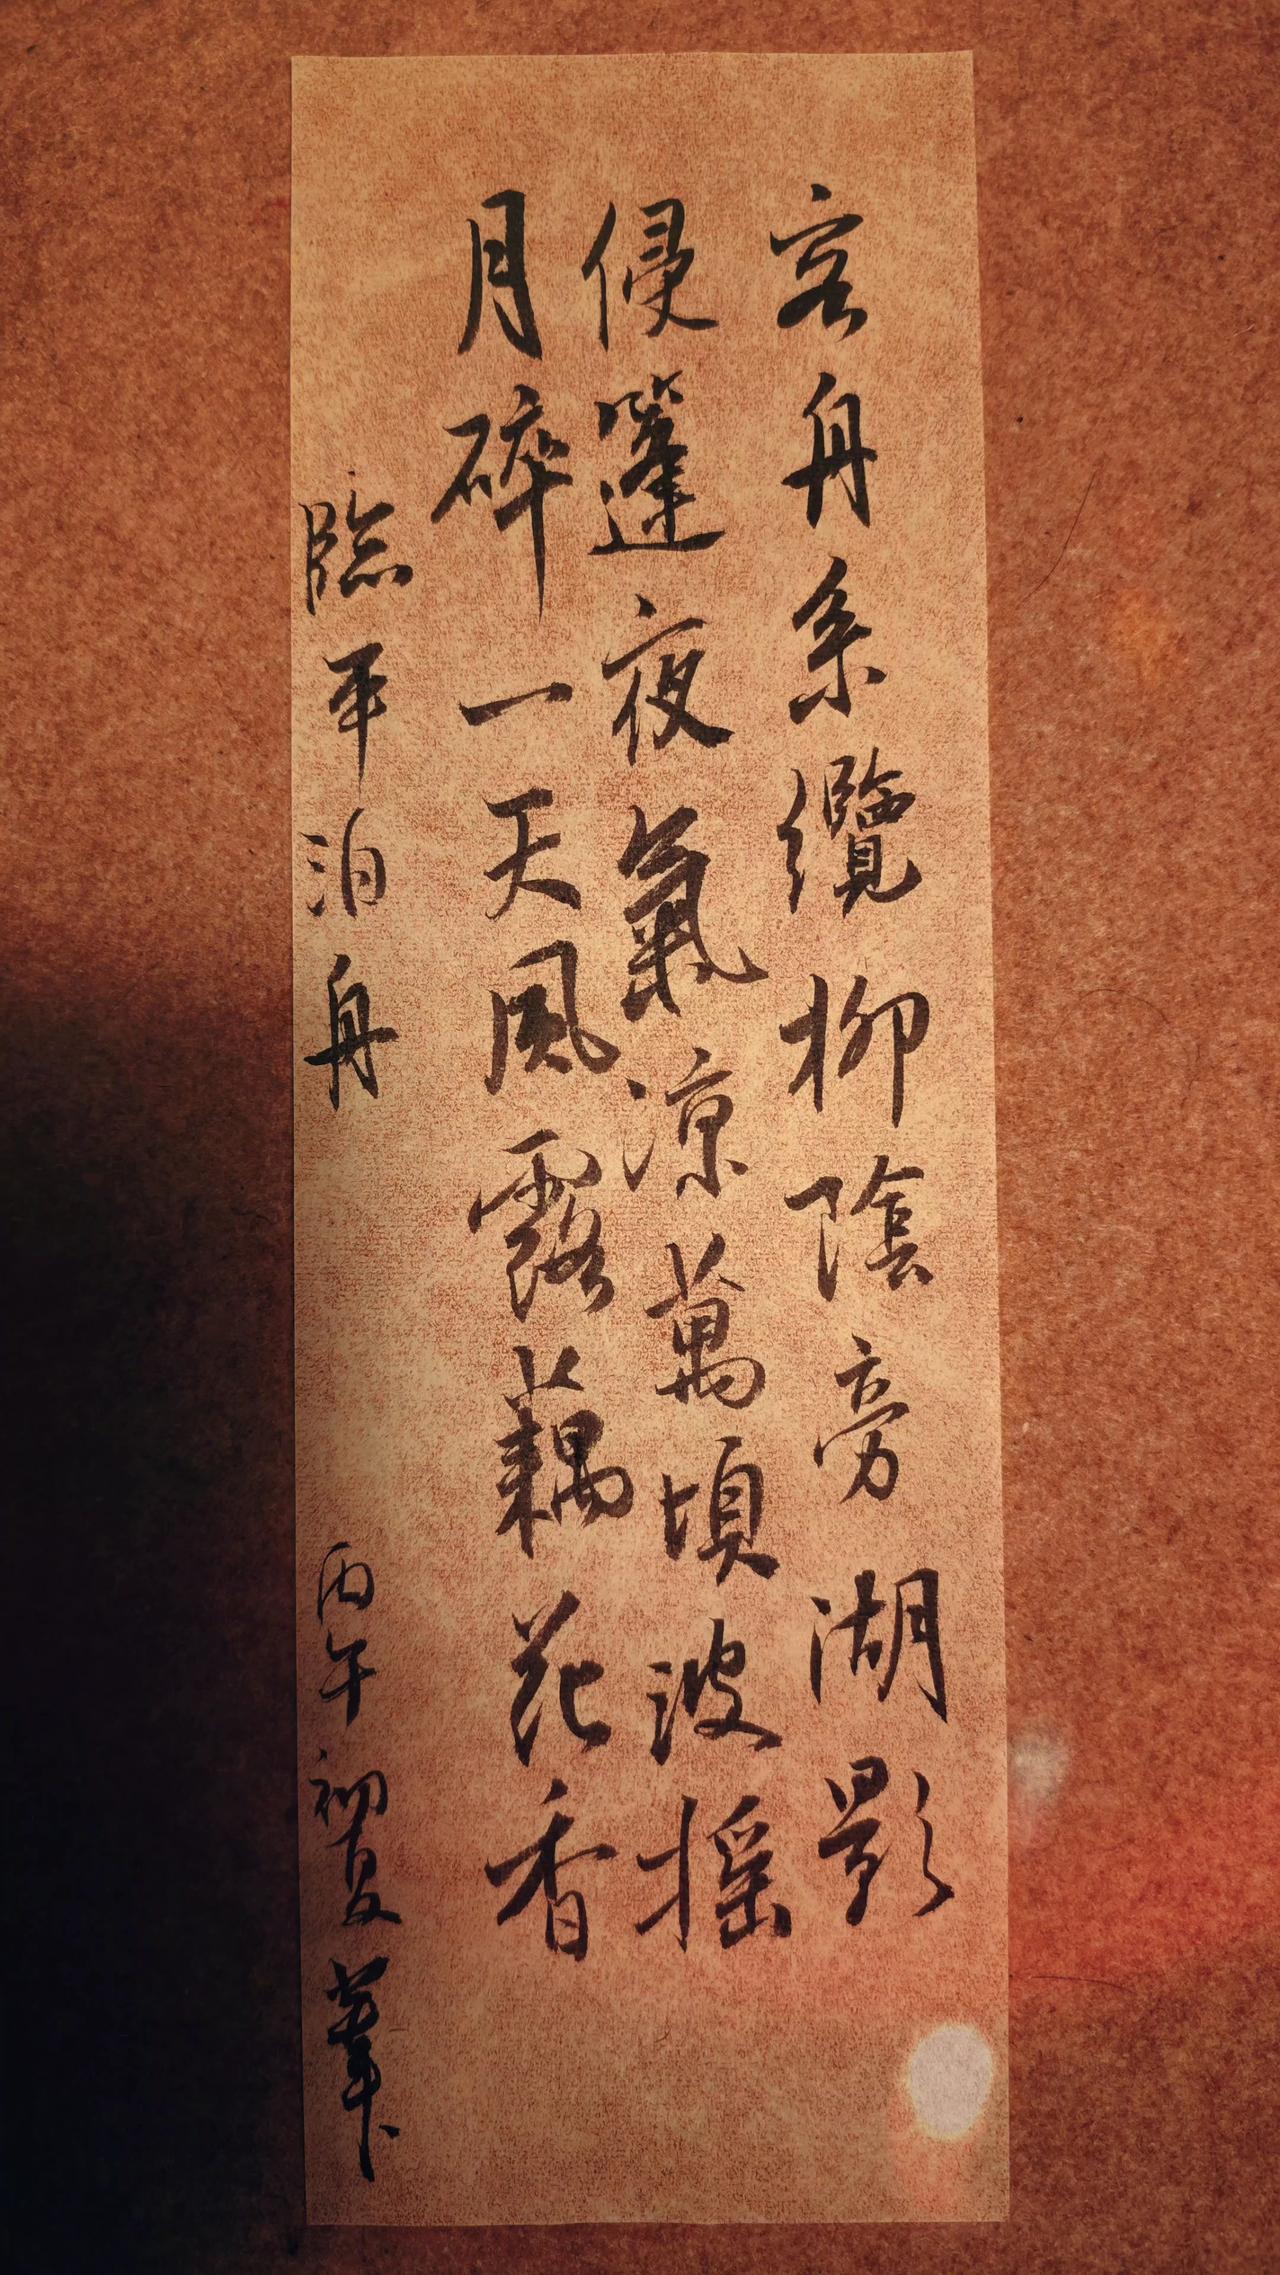 客舟系纜柳陰旁湖影
侵篷夜氣涼萬頃波摇
月碎一天風露藕花香
臨平泊舟
丙午初夏筆